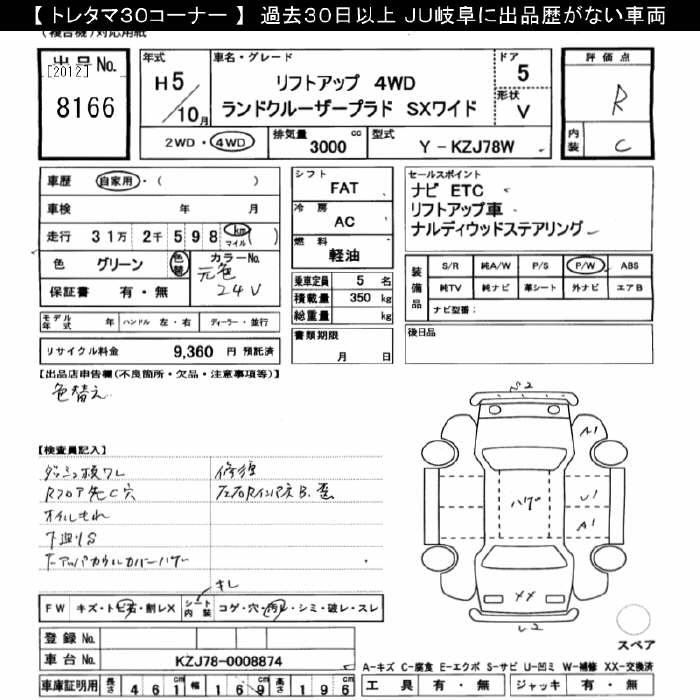 【 トレタマ30コーナー 】 過去30日以上 JU岐阜に出品歴がない車両
(複合機)対応用紙
出品No.
[2012]
8166
年式
H5/10月
車名・グレード
リフトアップ 4WD
ランドクルーザープラド SXワイド
ドア
5
形状
V
2WD・4WD
排気量
3000 cc
型式
Y-KZJ78W
評価点
R
内装
C
車歴 自家用・( )
車検 年 月
走行 31万 2千 598 km マイル ( )
色 グリーン 色替 カラーNo.
元色
24V
保証書 有・無
モデル年式 年 ハンドル 左・右 ディーラー・並行
リサイクル料金 9,360 円 預託済
シフト
FAT
冷房
AC
燃料
軽油
乗車定員 5 名
積載量 350 kg
総重量 kg
書類期限
月 日
セールスポイント
ナビ ETC
リフトアップ車
ナルディウッドステアリング
装備品
S/R 純A/W P/S P/W ABS
純TV 純ナビ 革シート 外ナビ エアB
ナビ型番:
後日品
【出品店申告欄(不良箇所・欠品・注意事項等)】
色替え
【検査員記入】
ダッシュ板ワレ
Rフロア先C穴
オイルもれ
下廻りS
修復
左右RインパネB.歪
F W キズ・トビ石・割レX
シート内装 コゲ・穴・汚レ・シミ・破レ・スレ
キレ
登録 No.
車台 No. KZJ78-0008874
車庫証明用 長さ 461 cm 幅 169 cm 高さ 196 cm
A1
ハゲ
U1
A1
XX
スペア
A-キズ C-腐食 E-エクボ S-サビ U-凹ミ W-補修 XX-交換済
工具 有・無 ジャッキ 有・無